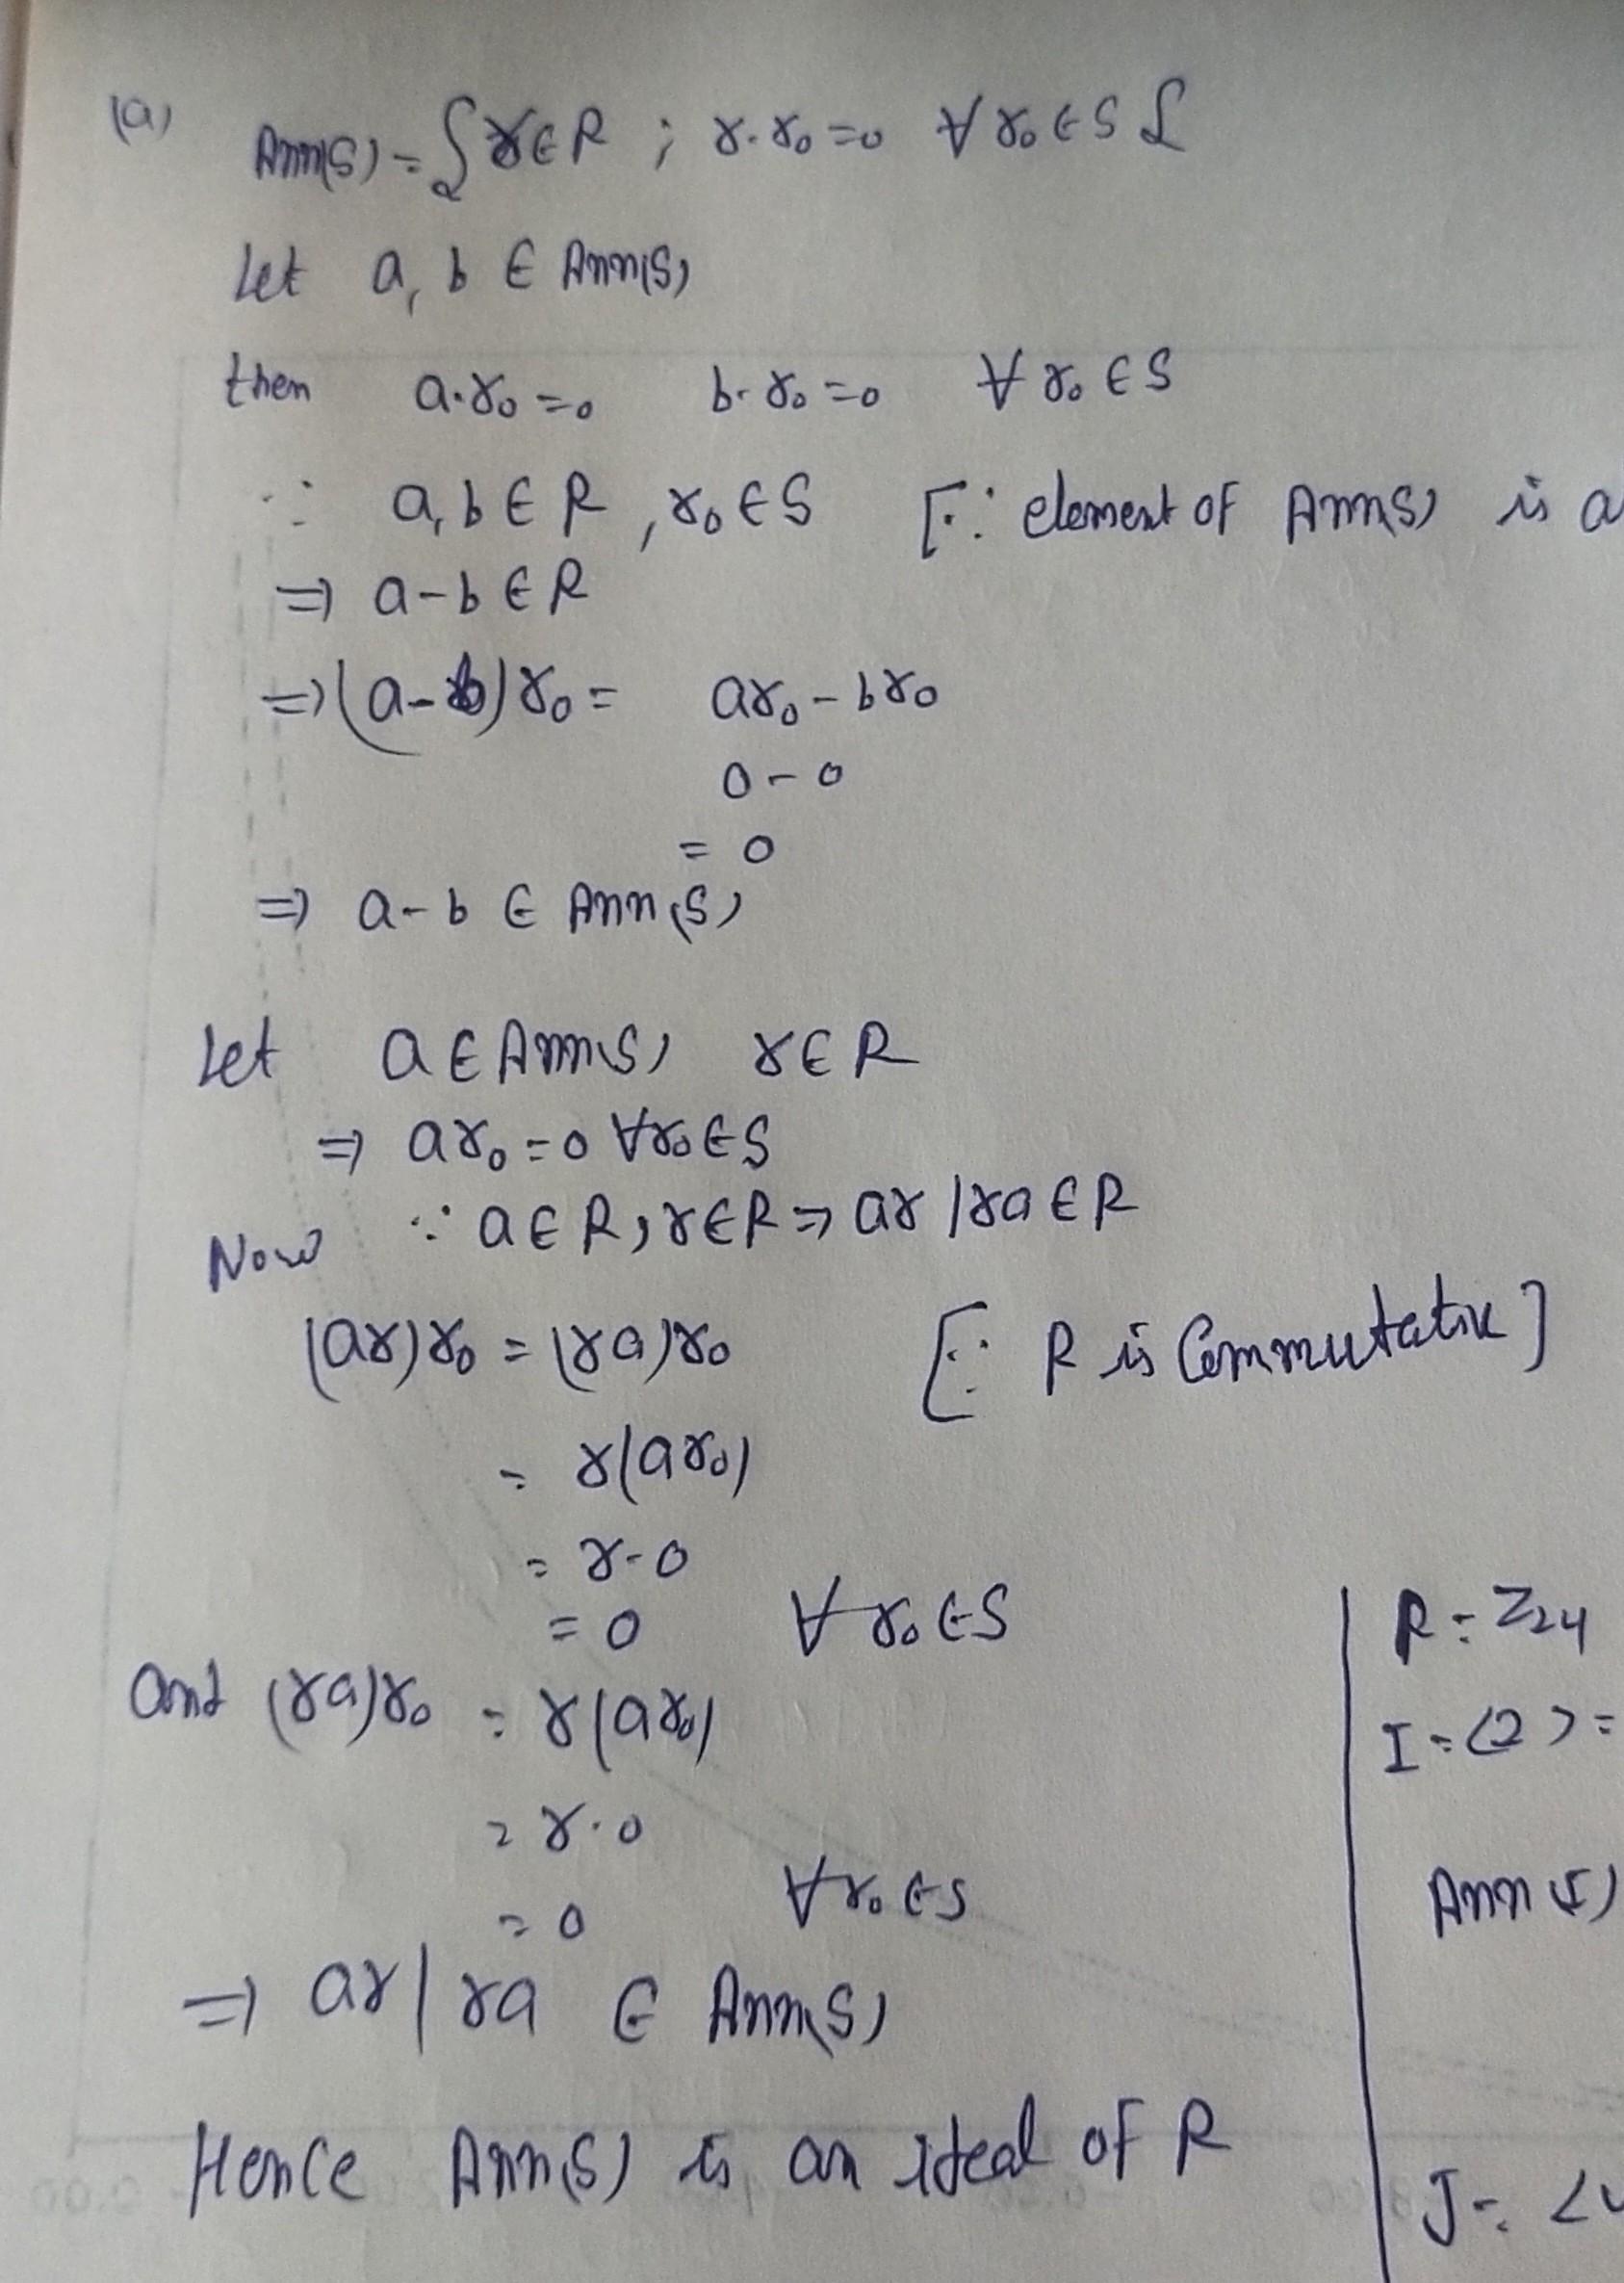 (a) Ann(S) = { r ∈ R ; r·r₀ = 0 ∀ r₀ ∈ S }
Let a, b ∈ Ann(S)
then a·r₀ = 0 b·r₀ = 0 ∀ r₀ ∈ S
∵ a, b ∈ R, r₀ ∈ S [∵ element of Ann(S) is a
⇒ a - b ∈ R
⇒ (a - b) r₀ = ar₀ - br₀
0 - 0
= 0
⇒ a - b ∈ Ann(S)
Let a ∈ Ann(S) r ∈ R
⇒ ar₀ = 0 ∀ r₀ ∈ S
Now ∵ a ∈ R, r ∈ R ⇒ ar | ra ∈ R
(ar)r₀ = (ra)r₀ [∵ R is Commutative]
= r(ar₀)
= r·0
= 0 ∀ r₀ ∈ S
and (ra)r₀ = r(ar₀)
= r·0
= 0 ∀ r₀ ∈ S
⇒ ar | ra ∈ Ann(S)
Hence Ann(S) is an ideal of R
R = Z₂₄
I = <2> =
Ann(I)
J = <